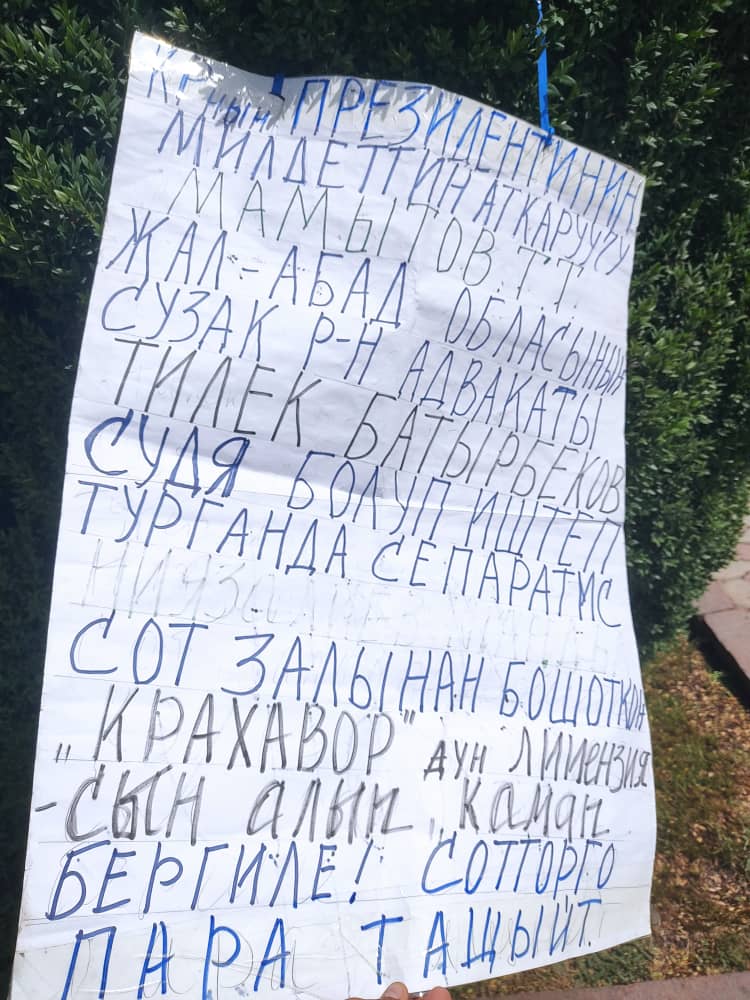 К.Р нын ПРЕЗИДЕНТИНИН
МИЛДЕТТИН АТКАРУУГУ
МАМЫТОВ.Т.Т.
ЖАЛ-АБАД ОБЛАСЫНЫН
СУЗАК Р-Н АДВАКАТЫ
ТИЛЕК БАТЫРБЕКОВ
СУДЯ БОЛУП ИШТЕП
ТУРГАНДА СЕПАРАТИС
СОТ ЗАЛЫНАН БОШОТКОН
„КРАХАВОР" ДУН ЛИЦЕНЗИЯ
-СЫН алып „Каман
БЕРГИЛЕ! СОТТОРГО
ПАРА ТАЩЫЙТ.